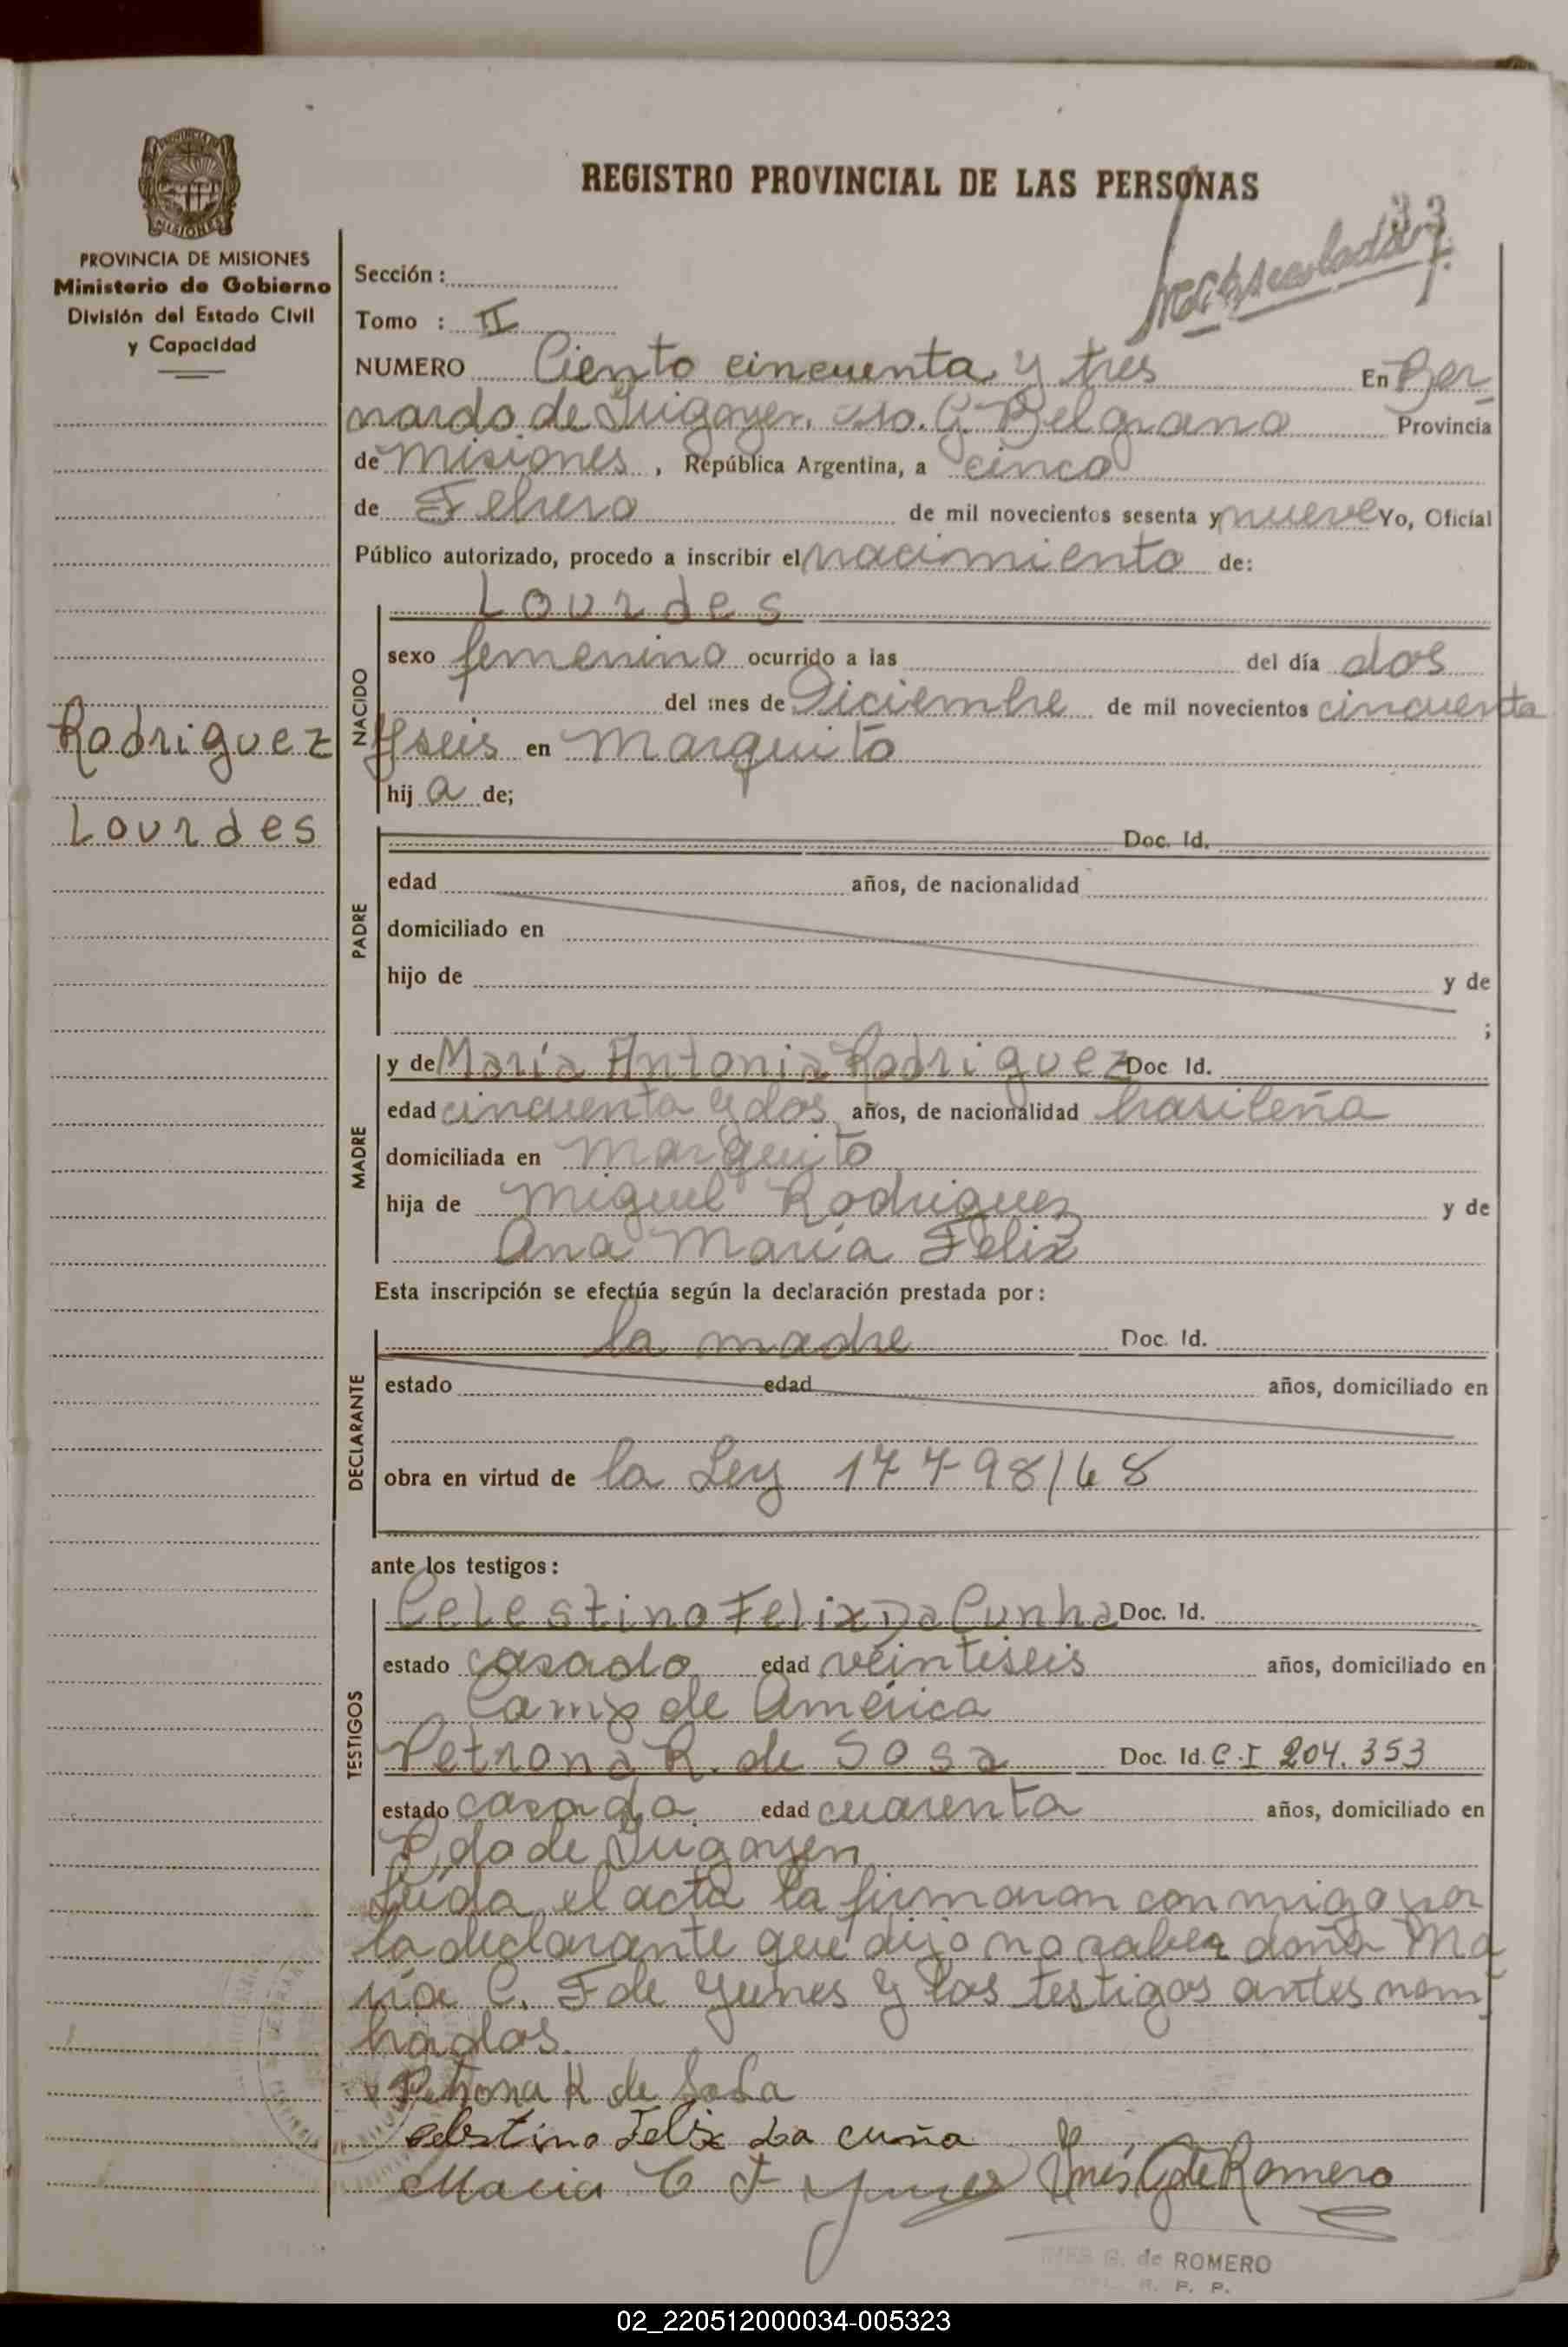 REGISTRO PROVINCIAL DE LAS PERSONAS
33
PROVINCIA DE MISIONES
Ministerio de Gobierno
División del Estado Civil
y Capacidad
Sección:
Tomo : II
NUMERO Ciento cincuenta y tres En Ber
nardo de Irigoyen, Dto. G. Belgrano Provincia
de Misiones, República Argentina, a cinco
de Febrero de mil novecientos sesenta y nueve Yo, Oficial
Público autorizado, procedo a inscribir el nacimiento de:
Lourdes
NACIDO
sexo femenino ocurrido a las del día dos
del mes de Diciembre de mil novecientos cincuenta
Rodriguez
y seis en Marquito
hija de;
Lourdes
PADRE
Doc. Id.
edad años, de nacionalidad
domiciliado en
hijo de y de
;
MADRE
y de María Antonia Rodriguez Doc Id.
edad cincuenta y dos años, de nacionalidad brasileña
domiciliada en Marquito
hija de Miguel Rodriguez y de
Ana María Felix
Esta inscripción se efectúa según la declaración prestada por:
DECLARANTE
la madre Doc. Id.
estado edad años, domiciliado en
obra en virtud de la Ley 17798/68
ante los testigos:
TESTIGOS
Celestino Felix Da Cunha Doc. Id.
estado casado edad veintiseis años, domiciliado en
Camp de América
Petrona K. de Sosa Doc. Id. C.I 204.353
estado casada edad cuarenta años, domiciliado en
Bdo de Irigoyen
Leída el acta la firmaron conmigo por
la declarante que dijo no saber doña Ma
ría C. F de Yunes y los testigos antes nom
brados.
Petrona K de Sosa
Celestino Felix Da cuña
Maria C F Yunes Inés G de Romero
INES G. de ROMERO
R. P. P.
02_220512000034-005323